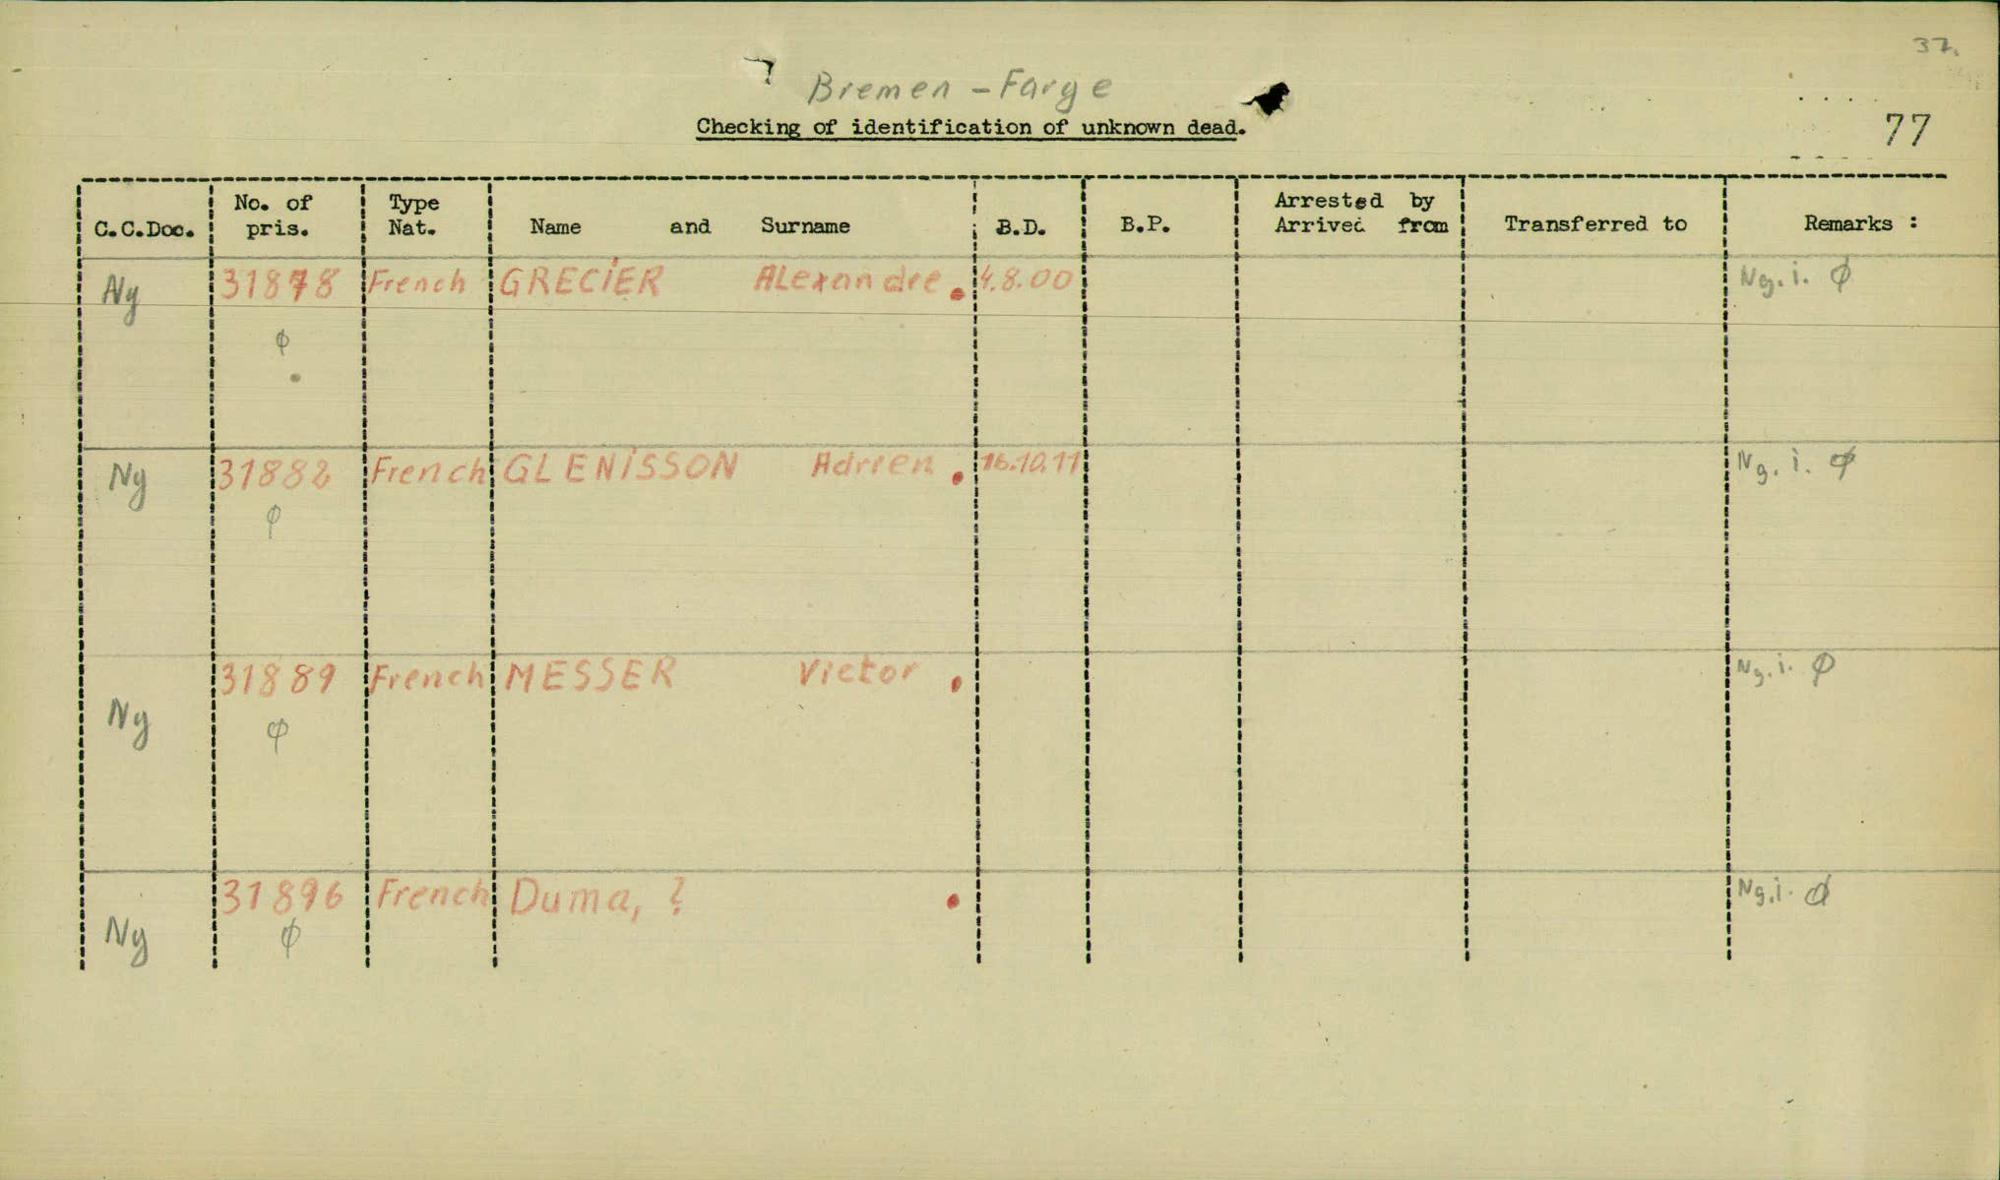 37.
Bremen - Farge
Checking of identification of unknown dead.
77
C.C.Doc. No. of pris. Type Nat. Name and Surname B.D. B.P. Arrested by Arrived from Transferred to Remarks :
Ng 31878 French GRECIER ALexandre. 4.8.00 Ng. i. ϕ
ϕ
Ng 31882 French GLENISSON Adrien. 16.10.11 Ng. i. ϕ
ϕ
Ng 31889 French MESSER Victor. Ng. i. ϕ
ϕ
Ng 31896 French Duma, ? . Ng.i. ϕ
ϕ